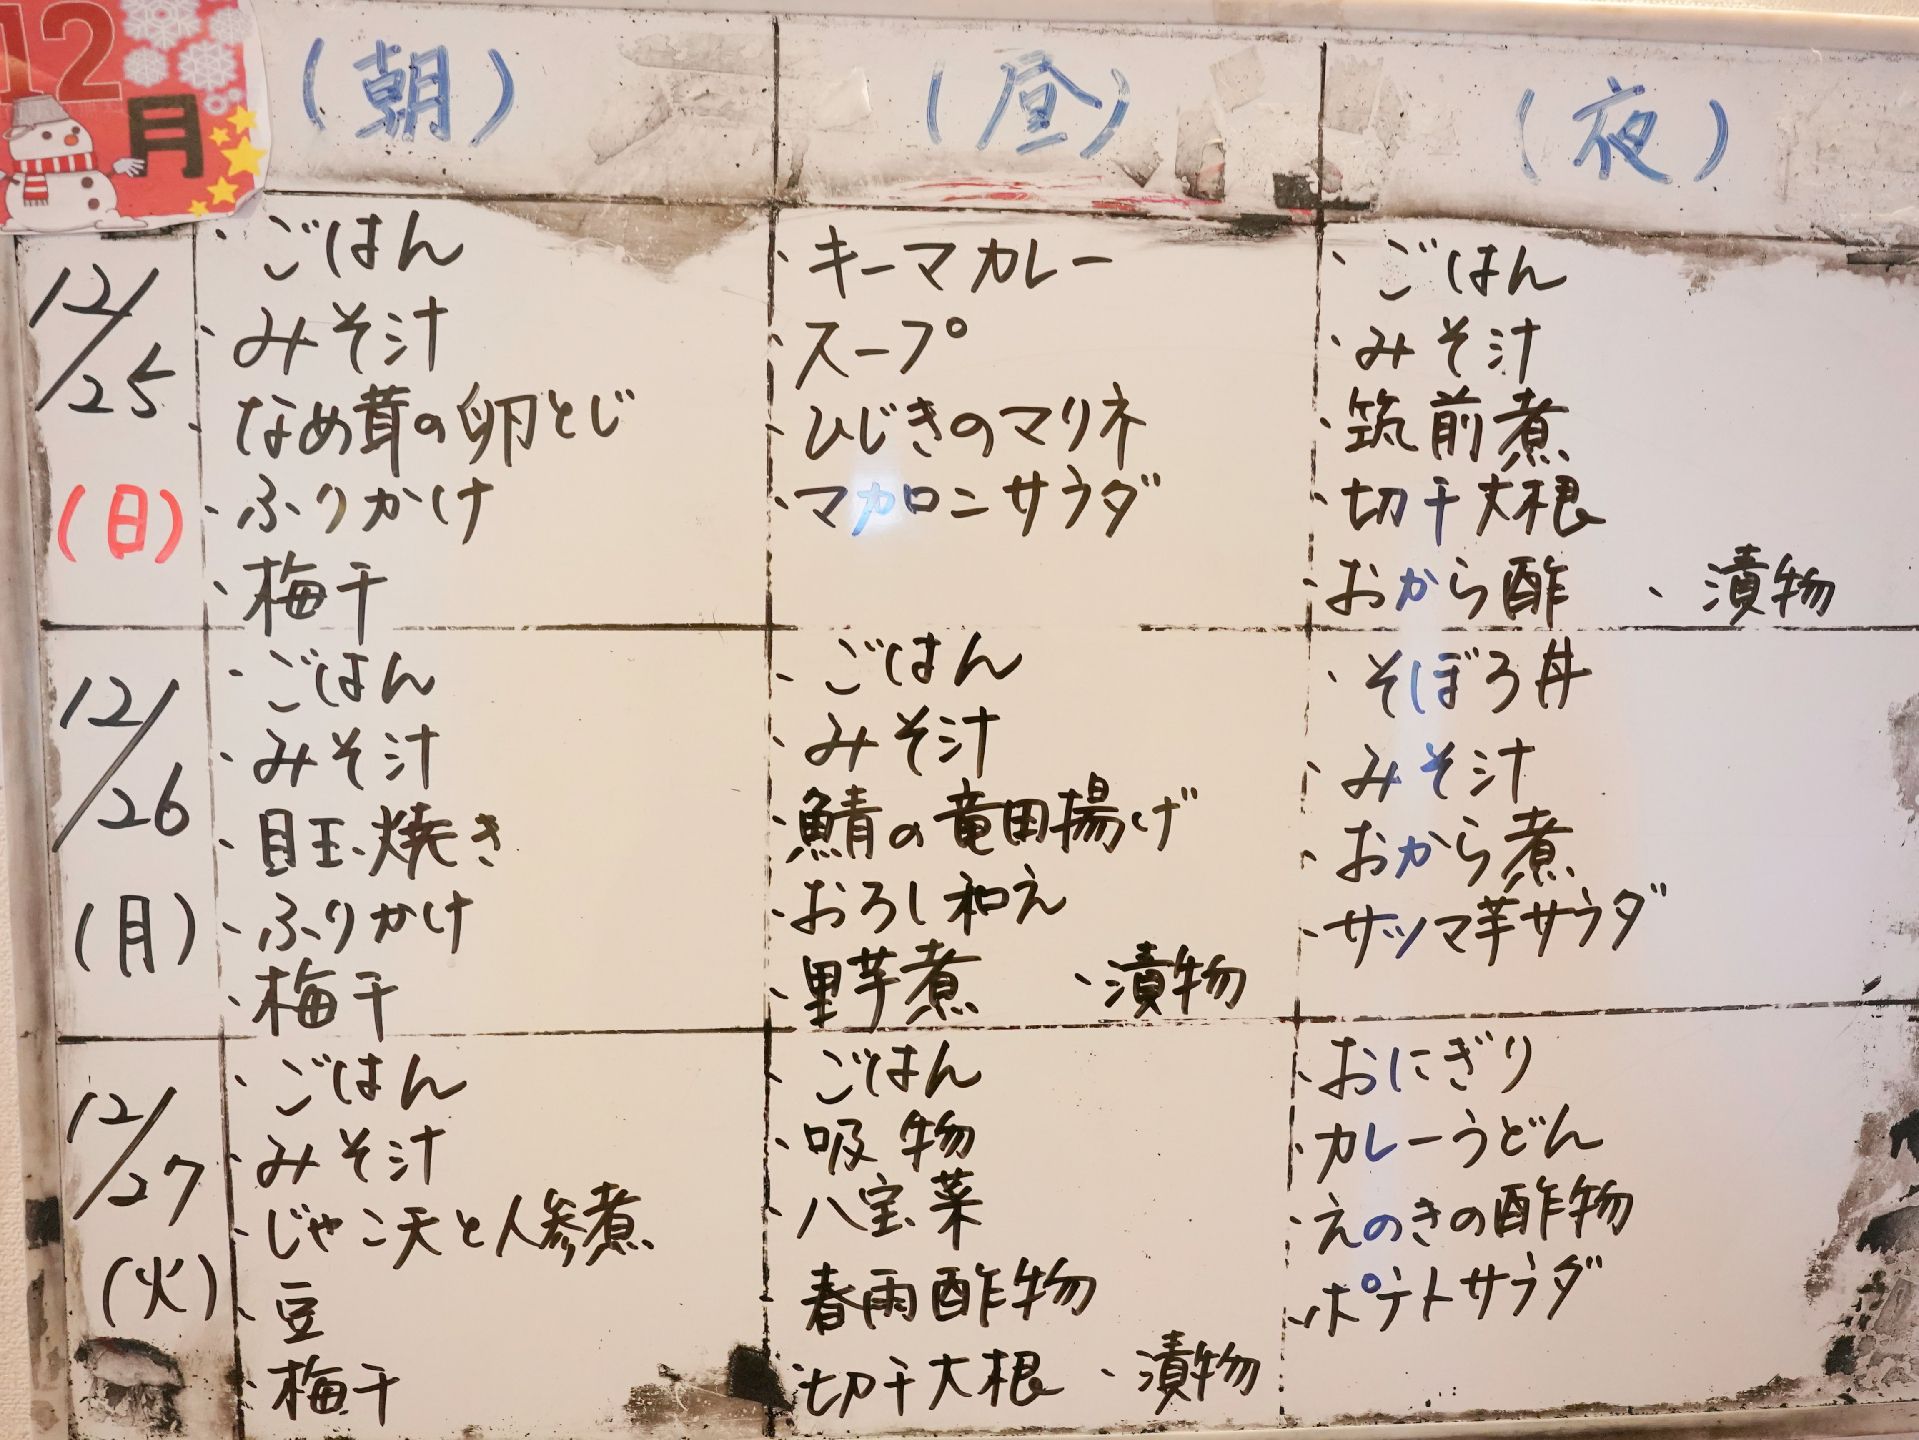 12月
（朝）
（昼）
（夜）
12/25
（日）
・ごはん
・みそ汁
・なめ茸の卵とじ
・ふりかけ
・梅干
・キーマカレー
・スープ
・ひじきのマリネ
・マカロニサラダ
・ごはん
・みそ汁
・筑前煮
・切干大根
・おから酢 ・漬物
12/26
（月）
・ごはん
・みそ汁
・目玉焼き
・ふりかけ
・梅干
・ごはん
・みそ汁
・鯖の竜田揚げ
・おろし和え
・里芋煮 ・漬物
・そぼろ丼
・みそ汁
・おから煮
・サツマ芋サラダ
12/27
（火）
・ごはん
・みそ汁
・じゃこ天と人参煮
・豆
・梅干
・ごはん
・吸物
・八宝菜
・春雨酢物
・切干大根 ・漬物
・おにぎり
・カレーうどん
・えのきの酢物
・ポテトサラダ